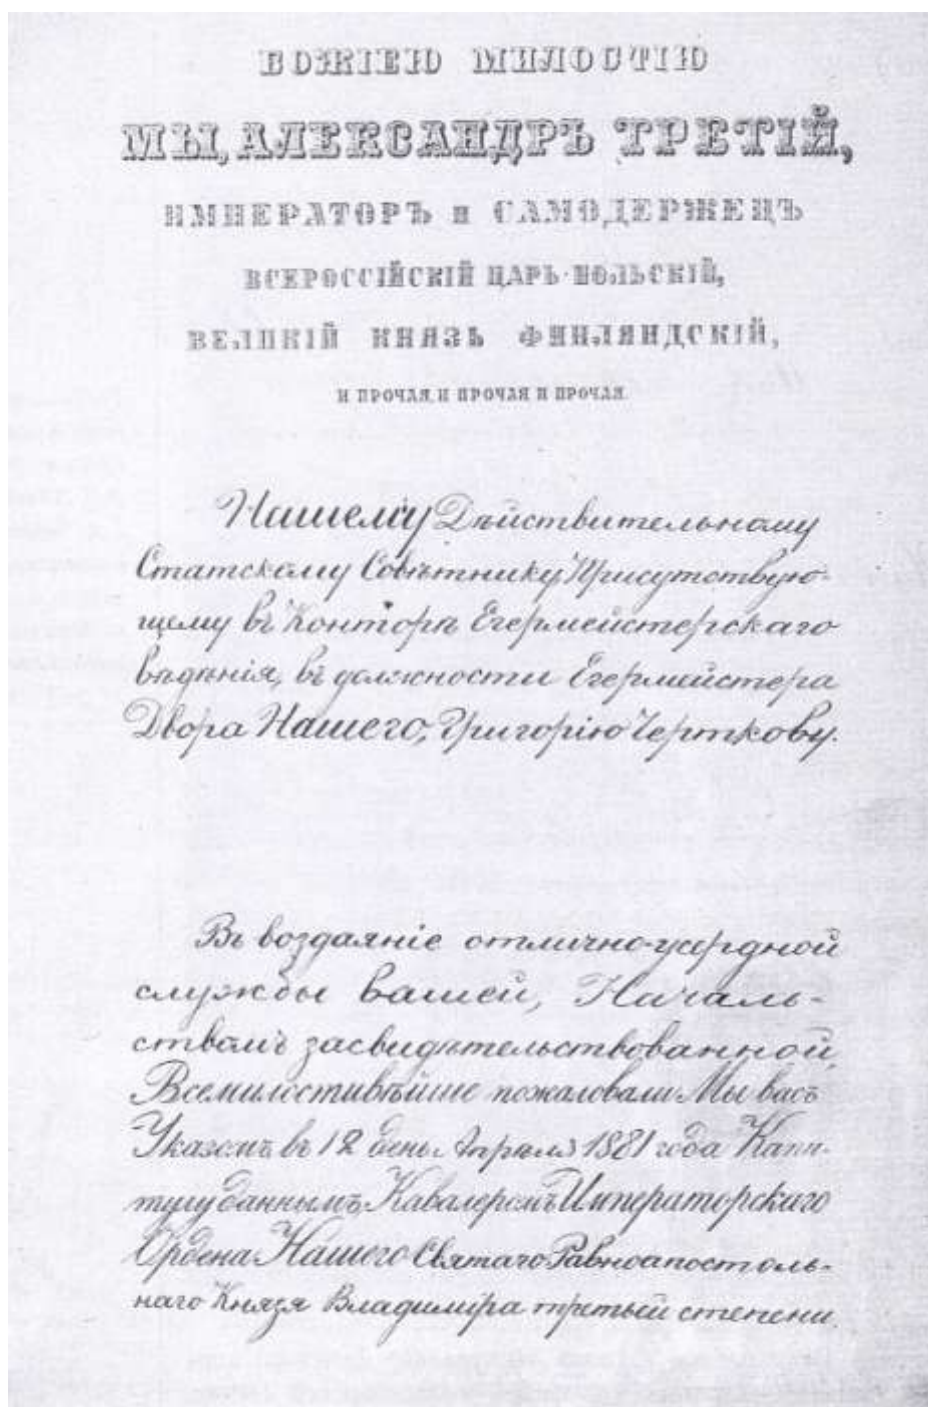 БОЖІЕЮ МИЛОСТІЮ
МЫ, АЛЕКСАНДРЪ ТРЕТІЙ,
ИМПЕРАТОРЪ и САМОДЕРЖЕЦЪ
ВСЕРОССІЙСКІЙ ЦАРЬ ПОЛЬСКІЙ,
ВЕЛИКІЙ КНЯЗЬ ФИНЛЯНДСКІЙ,
И ПРОЧАЯ, И ПРОЧАЯ И ПРОЧАЯ.
Нашему Дѣйствительному
Статскому Совѣтнику Присутствую-
щему въ Конторѣ Егермейстерскаго
вѣдѣнія, въ должности Егермейстера
Двора Нашего, Григорію Черткову.
Въ воздаяніе отлично-усердной
службы вашей, Началь-
ствомъ засвидѣтельствованной,
Всемилостивѣйше пожаловали Мы васъ
Указомъ въ 12 день Апрѣля 1881 года Капи-
тулу даннымъ, Кавалеромъ Императорскаго
Ордена Нашего Святаго Равноапостоль-
наго Князя Владиміра третьей степени.